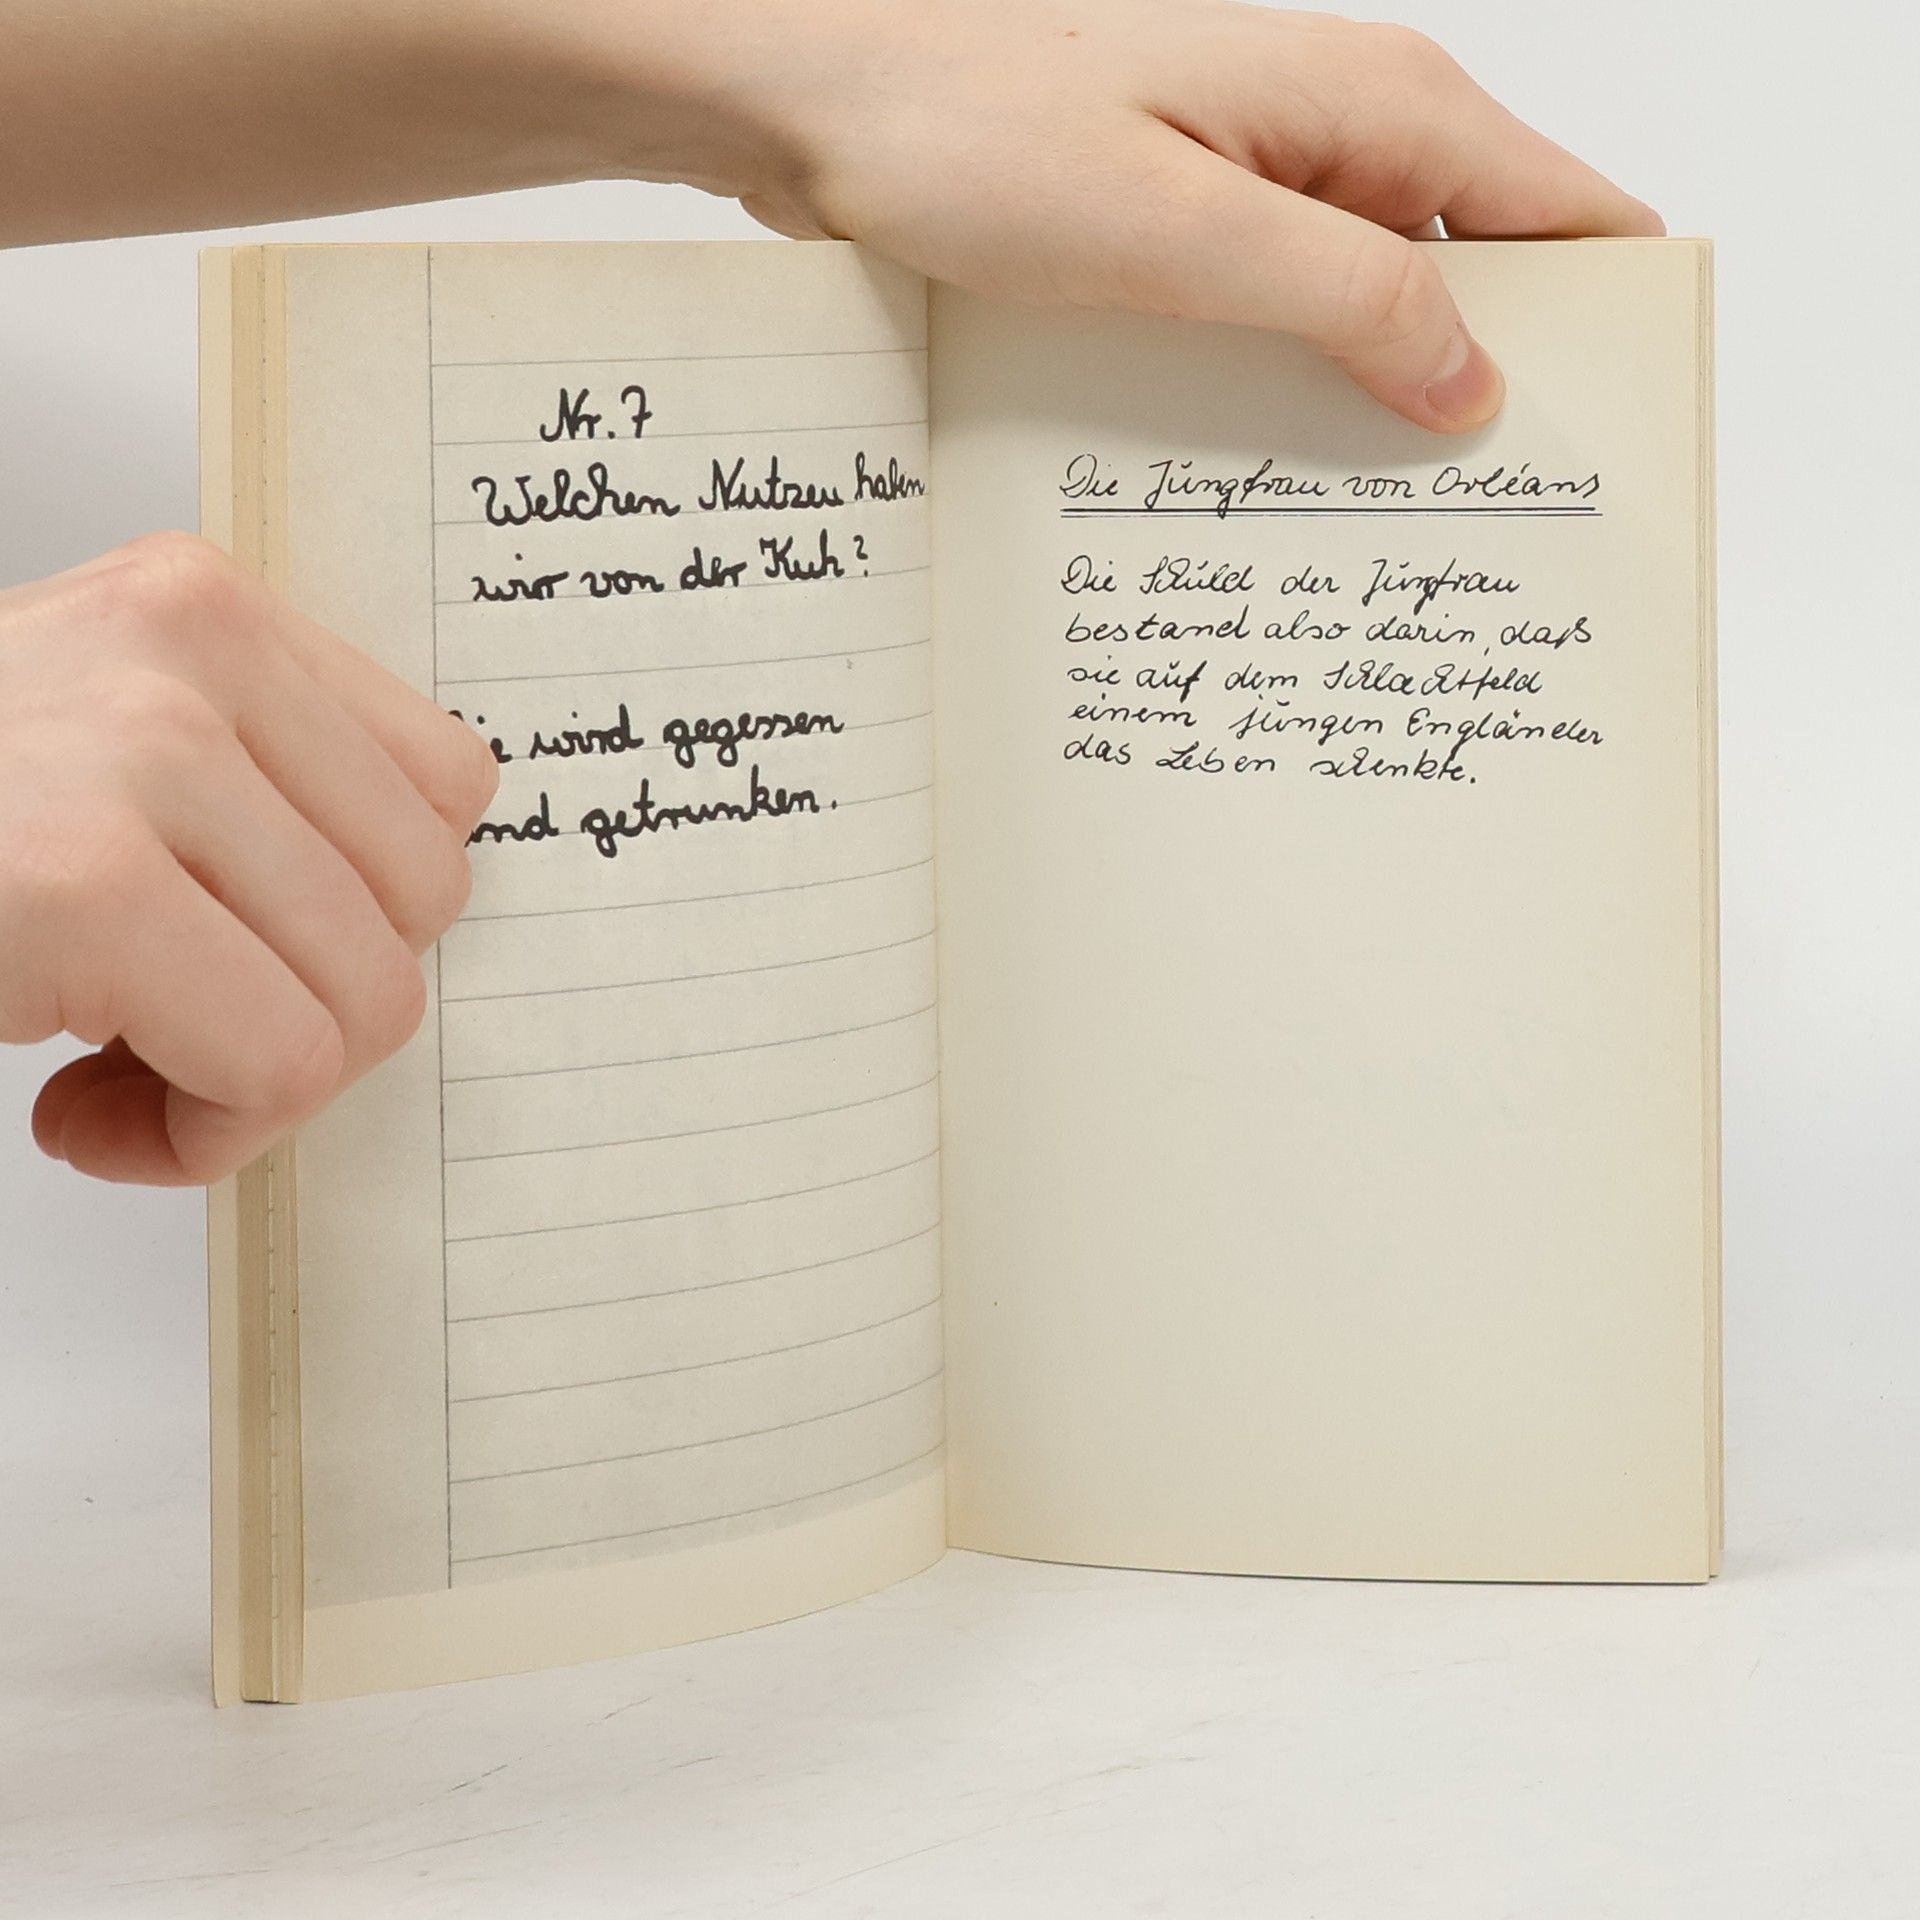 Nr. 7
Welchen Nutzen haben
wir von der Kuh?
wird gegessen
getrunken.
Die Jungfrau von Orléans
Die Schuld der Jungfrau
bestand also darin, daß
sie auf dem Schlachtfeld
einem jungen Engländer
das Leben schenkte.